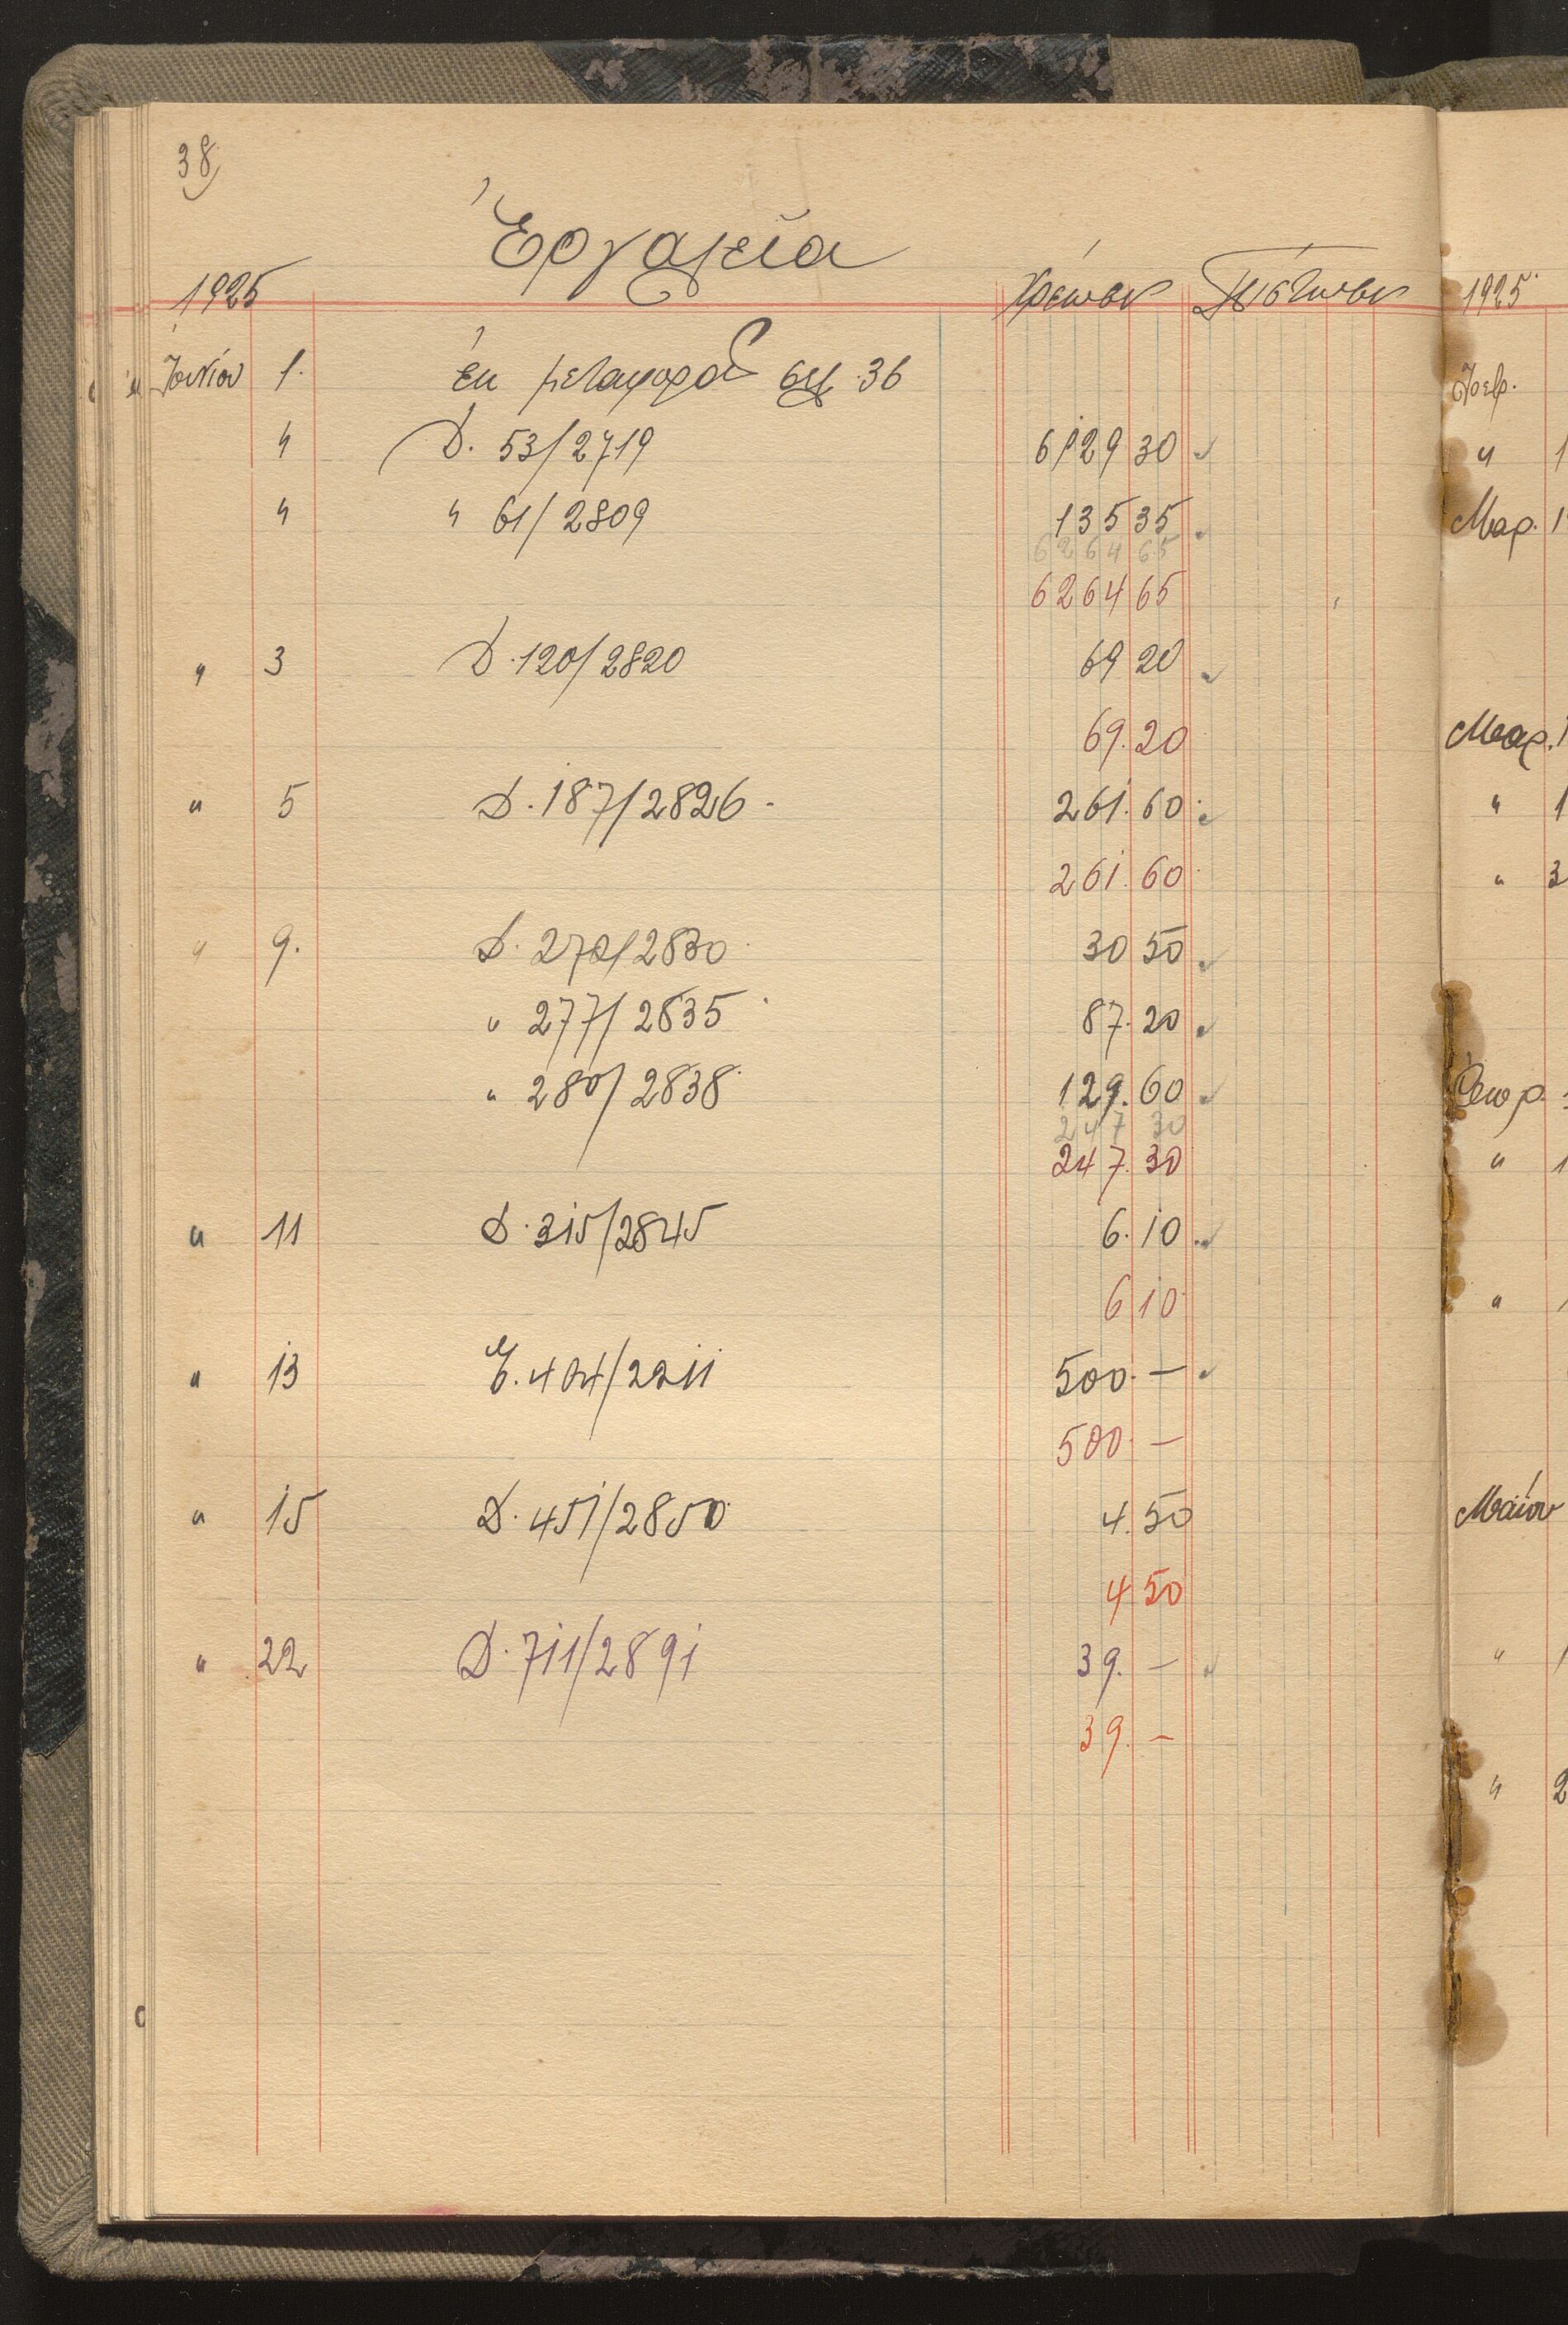 38
Ἐργαλεῖα
1925 Χρέωσις Πίστωσις
Ἰουνίου 1. ἐκ μεταφορᾶς σελ. 36
" D. 53/2719 6129 30
" " 61/2809 135 35
6264 65
6264 65
" 3 D. 120/2820 69 20
69. 20
" 5 D. 187/2826 261. 60
261. 60
" 9. D. 270/2830 30 50
" 277/2835 87. 20
" 280/2838 129. 60
247 30
247. 30
" 11 D. 315/2845 6. 10
6 10
" 13 404/2211 500. —
500. —
" 15 D. 451/2850 4. 50
4 50
" 22 D. 711/2891 39. —
39. —
1925
Φεβ.
" 1
Μαρ. 1
Μαρ. 1
" 1
" 3
"
"
Μαΐου
" 1
" 2